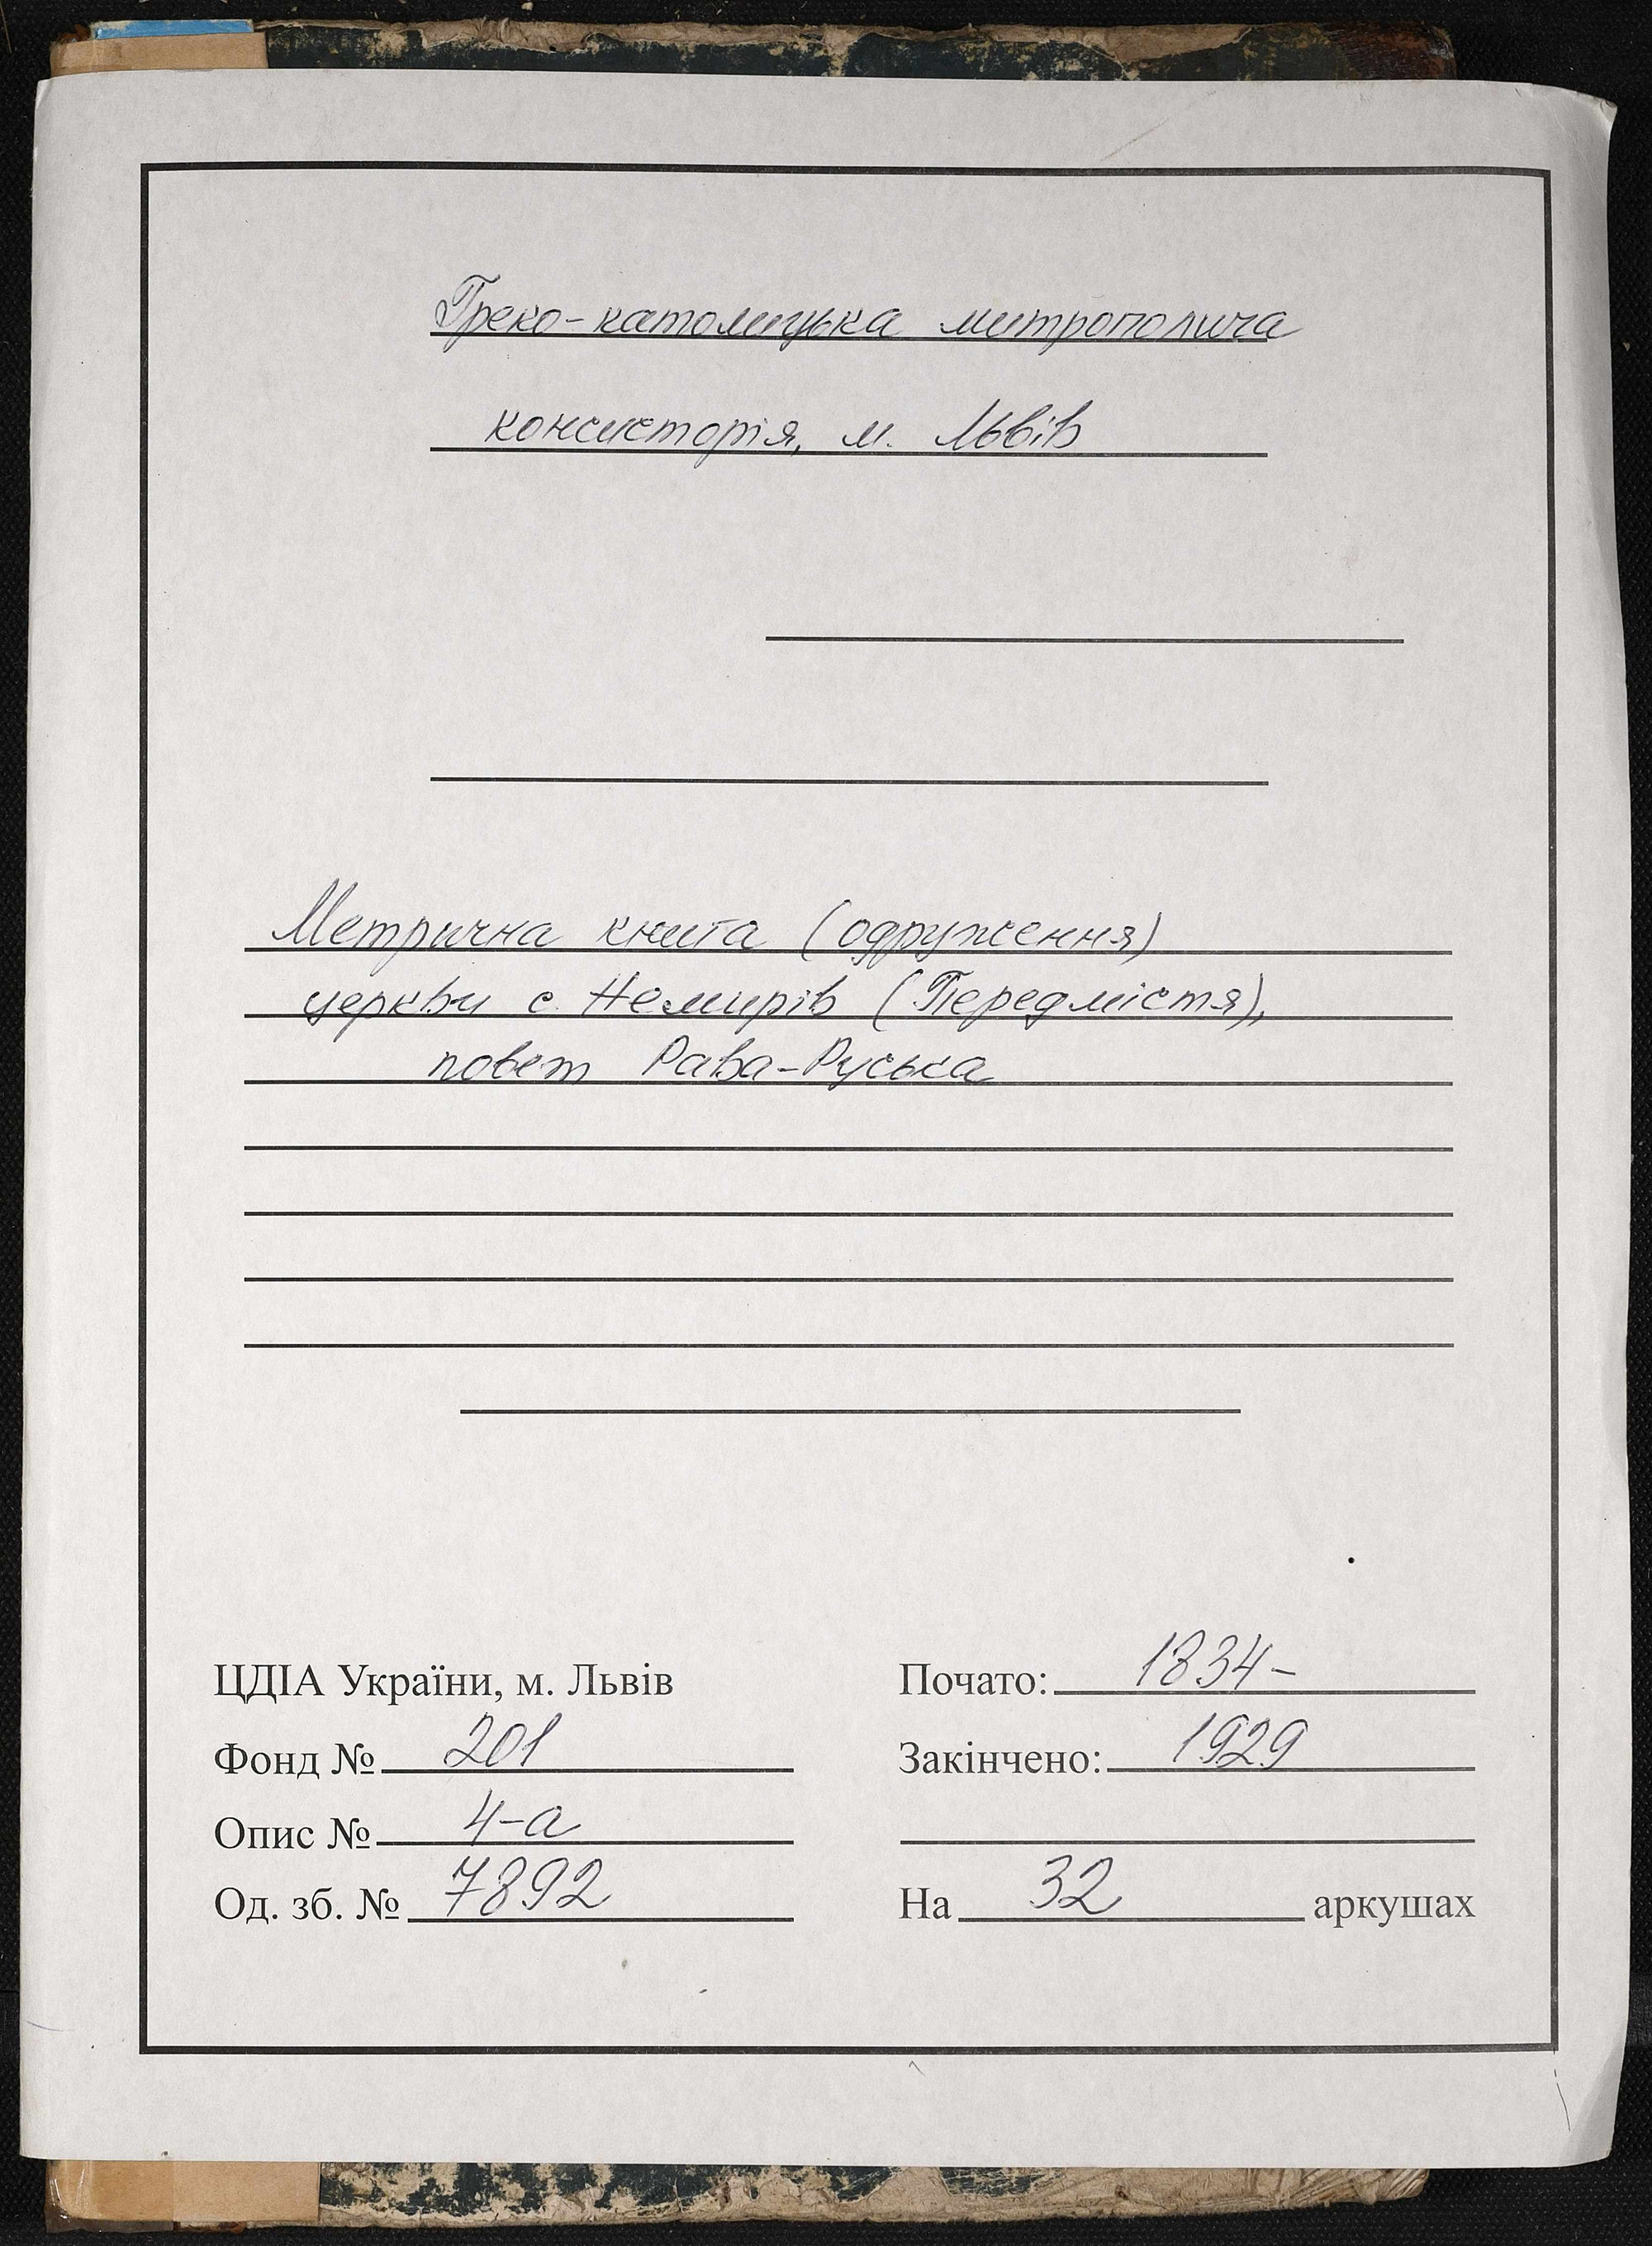 Греко-католицька митрополича
консисторія, м. Львів
Метрична книга (одруження)
церкви с. Немирів (Передмістя),
повет Рава-Руська
ЦДІА України, м. Львів
Фонд № 201
Опис № 4-а
Од. зб. № 7892
Почато: 1834-
Закінчено: 1929
На 32 аркушах